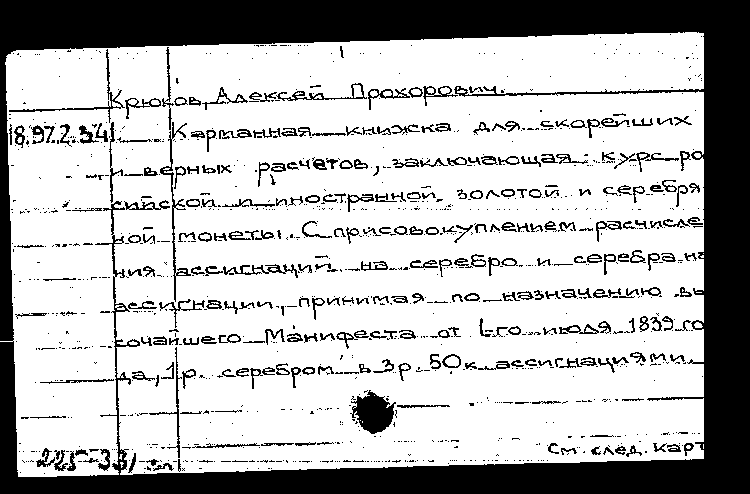 Крюков, Алексей Прохорович.
18.972.2.34 Карманная книжка для скорейших
и верных расчетов, заключающая: курс ро
сийской и иностранной, золотой и серебря
ной монеты. С присовокуплением расчисле
ния ассигнаций на серебро и серебра на
ассигнации, принимая по назначению вы
сочайшего Манифеста от 1-го июля 1839 го
да, 1 р. серебром в 3 р. 50 к. ассигнациями.
См. след. карт
225-331